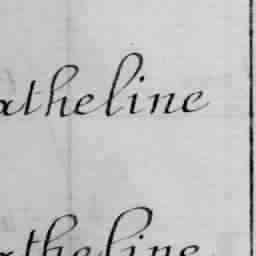 atheline
atheline